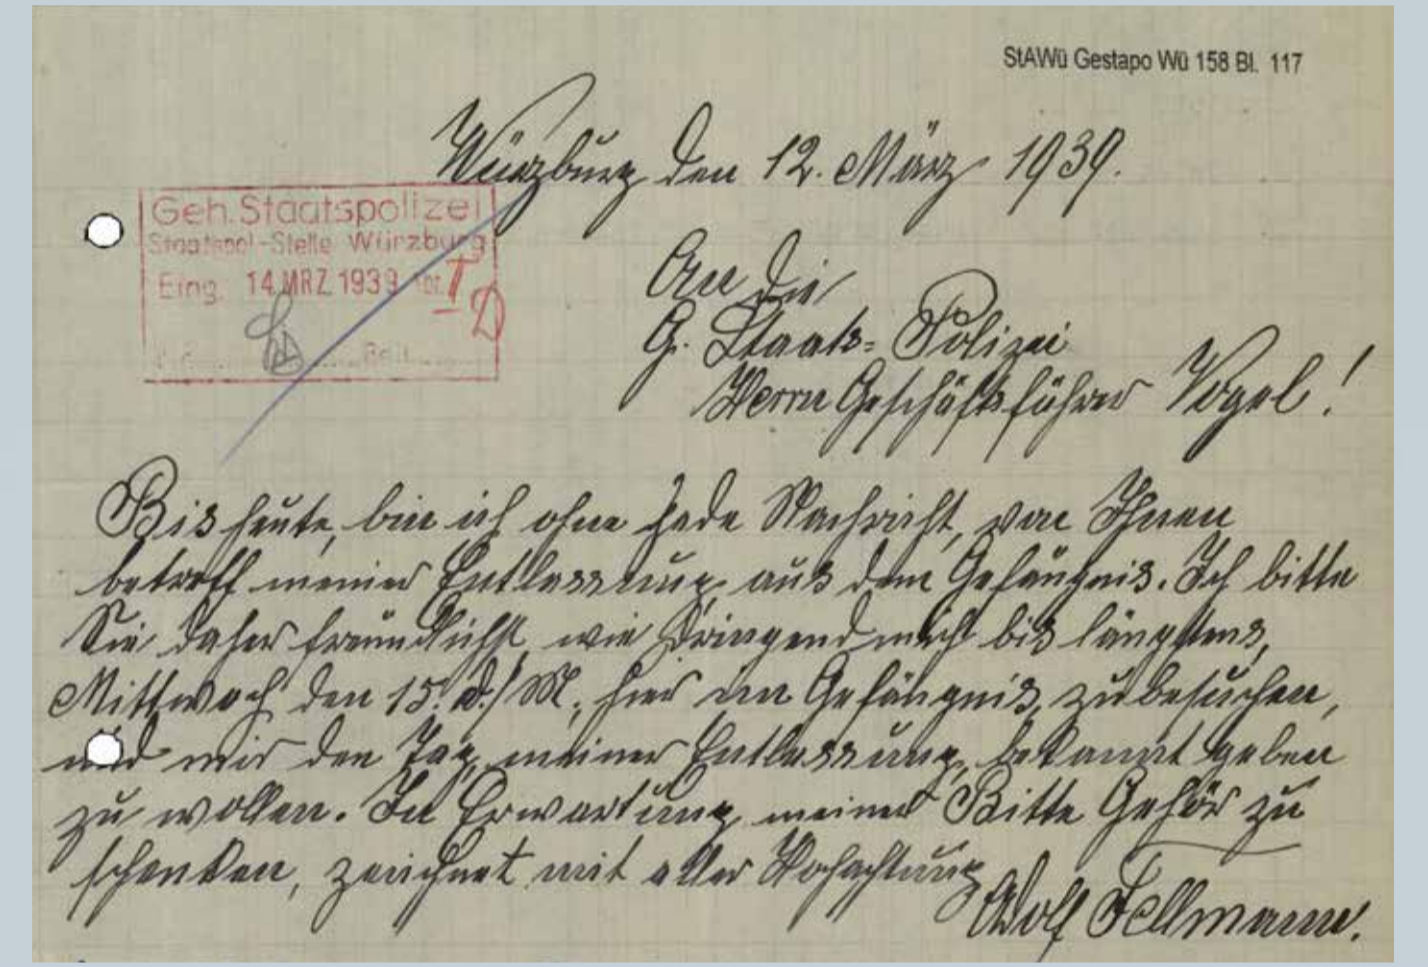 StAWü Gestapo Wü 158 Bl. 117
Würzburg den 12. März 1939.
Geh. Staatspolizei
Staatspol-Stelle Würzburg
Eing. 14. MRZ. 1939
An die
G. Staats-Polizei
Herrn Geschäftsführer Vogel!
Bis heute, bin ich ohne jede Nachricht, von Ihnen
betreff meiner Entlassung aus dem Gefängnis. Ich bitte
Sie daher freundlichst wie dringend mich bis längstens,
Mittwoch den 15. d./M., hier im Gefängnis zu besuchen,
und mir den Tag meiner Entlassung bekannt geben
zu wollen. In Erwartung meiner Bitte Gehör zu
schenken, zeichnet mit aller Hochachtung
Adolf Fellmann.